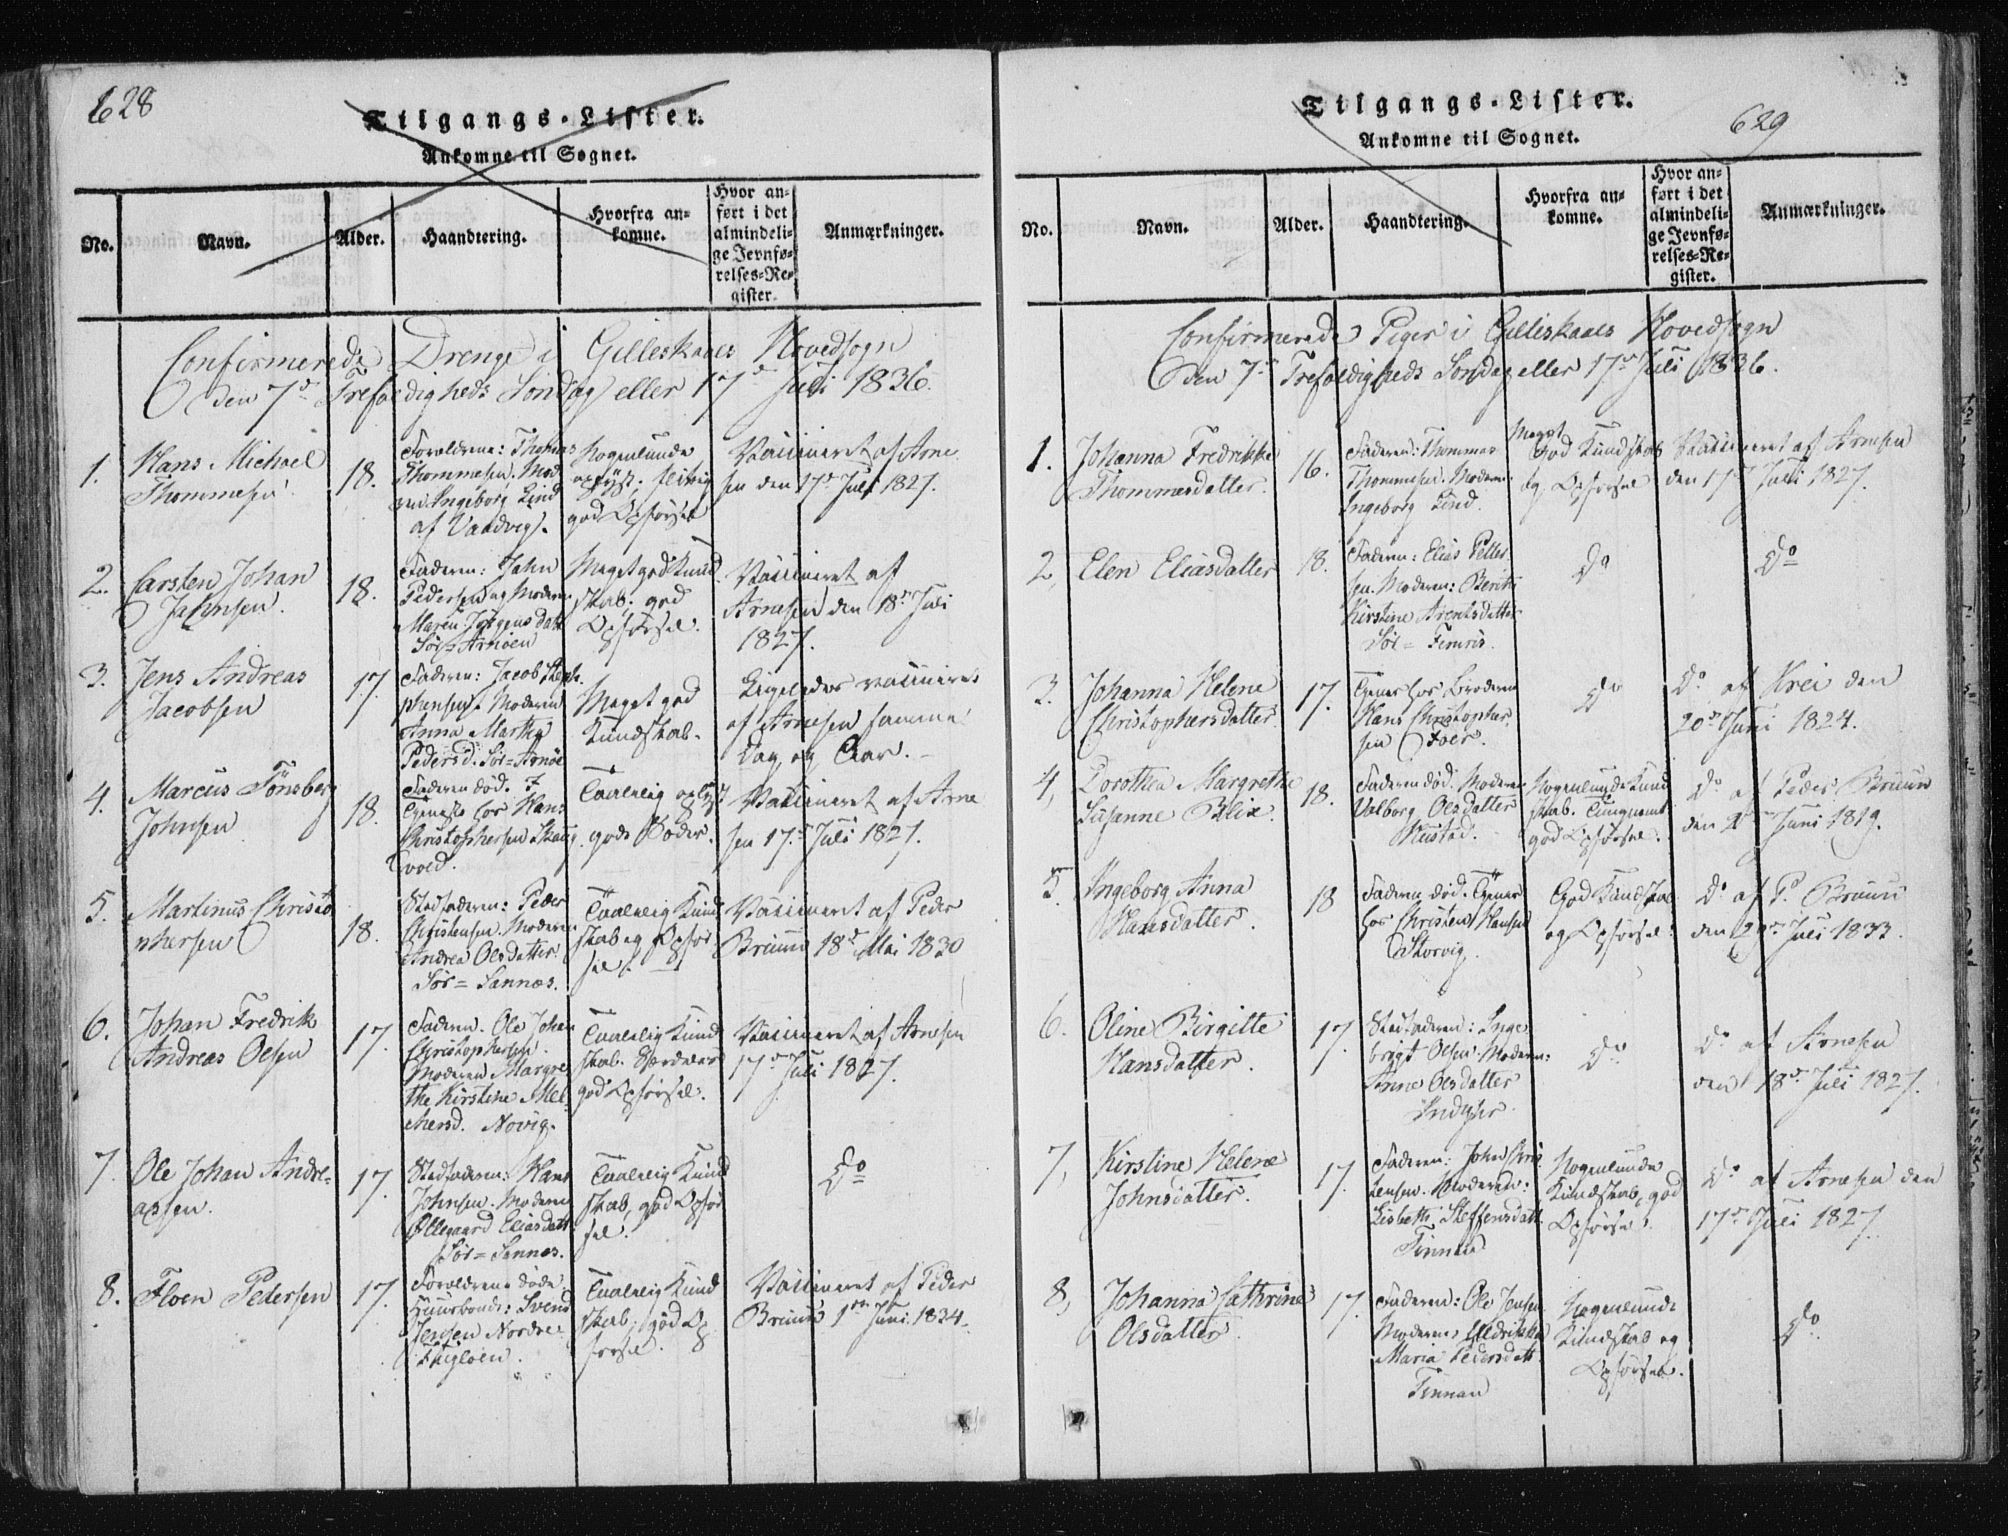 628
Tilgangs-Lister.
Ankomne til Sognet.
No.
Navn.
Alder.
Haandtering.
Hvorfra an-
komne.
Hvor an-
ført i det
almindeli-
ge Jevnfø-
relses-Re-
gister.
Anmærkninger.
Confirmerede Drenge i Gilleskaals Hovedsogn
den 7de Trefoldigheds Søndag eller 17de Juli 1836.
1.
Hans Michael
Thommesen
18.
Forældrene: Thomas
Thommesen. Mod
Ingeborg Lind
af Vaadvig.
Nogenlunde
oplyst; flittig
god Opførsel
Vaccineret af Arne
sen den 17de Juli 1827.
2.
Carsten Johan
Jahnsen.
18.
Faderen: Jahn
Pedersen og Moderen
Maren Jørgensdatt
Sør-Arnøen
Meget god Kund
skab; god
Opførsel.
Vaccineret af
Arnesen den 18de Juli
1827.
3.
Jens Andreas
Jacobsen
17.
Faderen: Jacob Steph
phensen. Moderen
Anna Martha
Pedersd. Sør=Arnøe
Meget god
Kundskab.
Ligeledes vaccineret
af Arnesen samme
Dag og Aar.
4.
Marcus Tønsberg
Johnsen
18.
Faderen død.
Tjeneste hos Hans
Christophersen Skaug
vold.
Taalelig oplyst
gode Sæder.
Vaccineret af Arne
sen 17de Juli 1827.
5.
Martinus Christo
phersen
18.
Stedfaderen: Peder
Christensen. Moderen
Andrea Olsdatter.
Sør=Sannæs.
Taalelig Kund
skab og Opfør
sel.
Vaccineret af Peder
Bruun 18de Mai 1830
6.
Johan Fredrik
Andreas Olsen
17.
Faderen. Ole Johan
Christophersen.
Moderen Margre
the Kirstine Mel
chersd. Novig.
Taalelig Kund
skab.
god Opførsel.
Vaccineret af Arnesen
17de Juli 1827.
7.
Ole Johan Andre-
assen.
17.
Stedfaderen: Hans
Johnsen. Moderen
Ellegaard Eliasdatt
Sør=Sannes.
Taalelig Kund
skab, god Opfør
sel.
Do
8.
Floen Pedersen
17.
Forældrene døde
Huusbond: Svend
Jensen Nordre
Fugløen.
Taalelig Kund
skab; god Op
førsel.
Vaccineret af Peder
Bruun 1ste Juni 1834.
Tilgangs-Lister.
629
Ankomne til Sognet.
No.
Navn.
Alder.
Haandtering.
Hvorfra an-
komne.
Hvor an-
ført i det
almindeli-
ge Jevnfø-
relses-Re-
gister.
Anmærkninger.
Confirmerede Piger i Gilleskaals Hovedsogn
den 7de Trefoldigheds Søndag eller 17de Juli 1836.
1.
Johanna Fredrikke
Thommesdatter.
16.
Faderen: Thommas
Thommesen. Moderen
Ingeborg Lind.
Meget
God Kundskab
og Opførsel
Vaccineret af Arnesen
den 17de Juli 1827.
2,
Elen Eliasdatter
18.
Faderen: Elias Petter
sen. Moderen: Berith
Kirstine Arentsdatter
Sør=Fimris.
Do
Do
3.
Johanna Helene
Christophersdatter.
17.
Tjener hos Broderen
Hans Christopher
sen Foer.
Do
Do af Krei den
20de Juni 1824.
4,
Dorothea Margrethe
Susanne Blix
18.
Faderen død. Moderen
Valborg Olsdatter
Mustad.
Nogenlunde Kund
skab.
god Opførsel.
Do af Peder Bruun
den 2den Juni 1819.
5.
Ingeborg Anna
Hansdatter.
18
Faderen død. Tjener
hos Christen Hansen
Storvig.
God Kundskab
og Opførsel.
Do af P. Bruun
den 29de Juli 1833.
6.
Oline Birgitte
Hansdatter.
17.
Stedfaderen: Inge
brigt Olsen. Moderen:
Anne Olsdatter
Indyhr.
Do
Do af Arnesen
den 18de Juli 1827.
7,
Kirstine Helene
Johnsdatter.
17.
Faderen: John Chris
tensen. Moderen:
Lisbeth Steffensdatt.
Finnæs
Nogenlunde
Kundskab, god
Opførsel.
Do af Arnesen den
17de Juli 1827
8,
Johanna Cathrine
Olsdatter.
17.
Faderen: Ole Jensen
Moderen: Uldrikka
Maria Pedersdatt.
Finnæs
Nogenlunde
Kundskab og
Opførsel.
Do